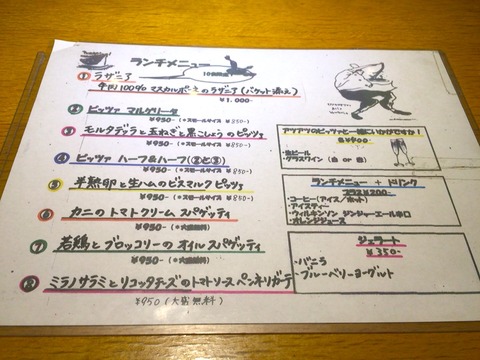 ランチメニュー
① ラザニア
牛肉100% マスカルポーネのラザニア(バケット添え)
¥1.000-
② ピッツァ マルゲリータ
¥950- (*スモールサイズ ¥850-)
③ モルタデッラと玉ねぎと黒こしょうのピッツァ
¥950- (*スモールサイズ ¥850-)
④ ピッツァ ハーフ&ハーフ(②と③)
¥950- (*スモールサイズ ¥850-)
⑤ 半熟卵と生ハムのビスマルク ピッツァ
¥950- (*スモールサイズ ¥850-)
⑥ カニのトマトクリーム スパゲッティ
¥950- (*大盛無料)
⑦ 若鶏とブロッコリーの オイル スパゲッティ
¥950- (*大盛無料)
⑧ ミラノサラミとリコッタチーズのトマトソース ペンネリガーテ
¥950 (大盛無料)
アツアツのピッツァと一緒にいかがですか!
各¥400-
・生ビール
・グラスワイン (白 or 赤)
ランチメニュー + ドリンク
プラス¥200-
・コーヒー(アイス/ホット)
・アイスティー
・ウィルキンソン ジンジャーエール辛口
・オレンジジュース
ジェラート
¥350-
・バニラ
・ブルーベリーヨーグルト